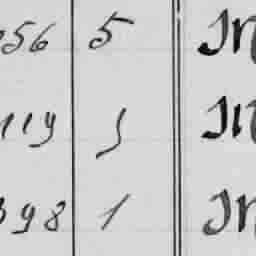 56 5 In
119 5 In
398 1 In